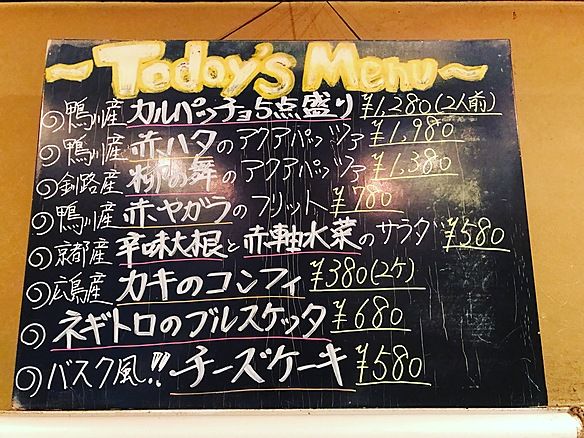 ~Today's Menu~
鴨川産 カルパッチョ5点盛り ¥1,280(2人前)
鴨川産 赤ハタのアクアパッツァ ¥1,980
釧路産 の舞のアクアパッツァ ¥1,380
鴨川産 赤ヤガラのフリット ¥780
京都産 辛味大根と赤軸水菜のサラダ ¥580
広島産 カキのコンフィ ¥380(2ケ)
ネギトロのブルスケッタ ¥680
バスク風!! チーズケーキ ¥580